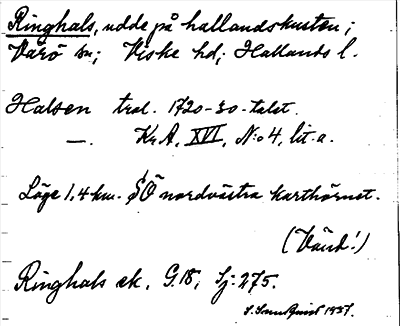 Ringhals, udde på hallandskusten;
Värö sn; Viske hd; Hallands l.
Halsen trol. 1720-30-talet.
—. Kr.A. XVI, N:o 4, lit. a.
Läge 1,4 km. SÖ nordvästra karthörnet.
(Vänd!)
Ringhals ek. G.18; Sj: 275.
1937.